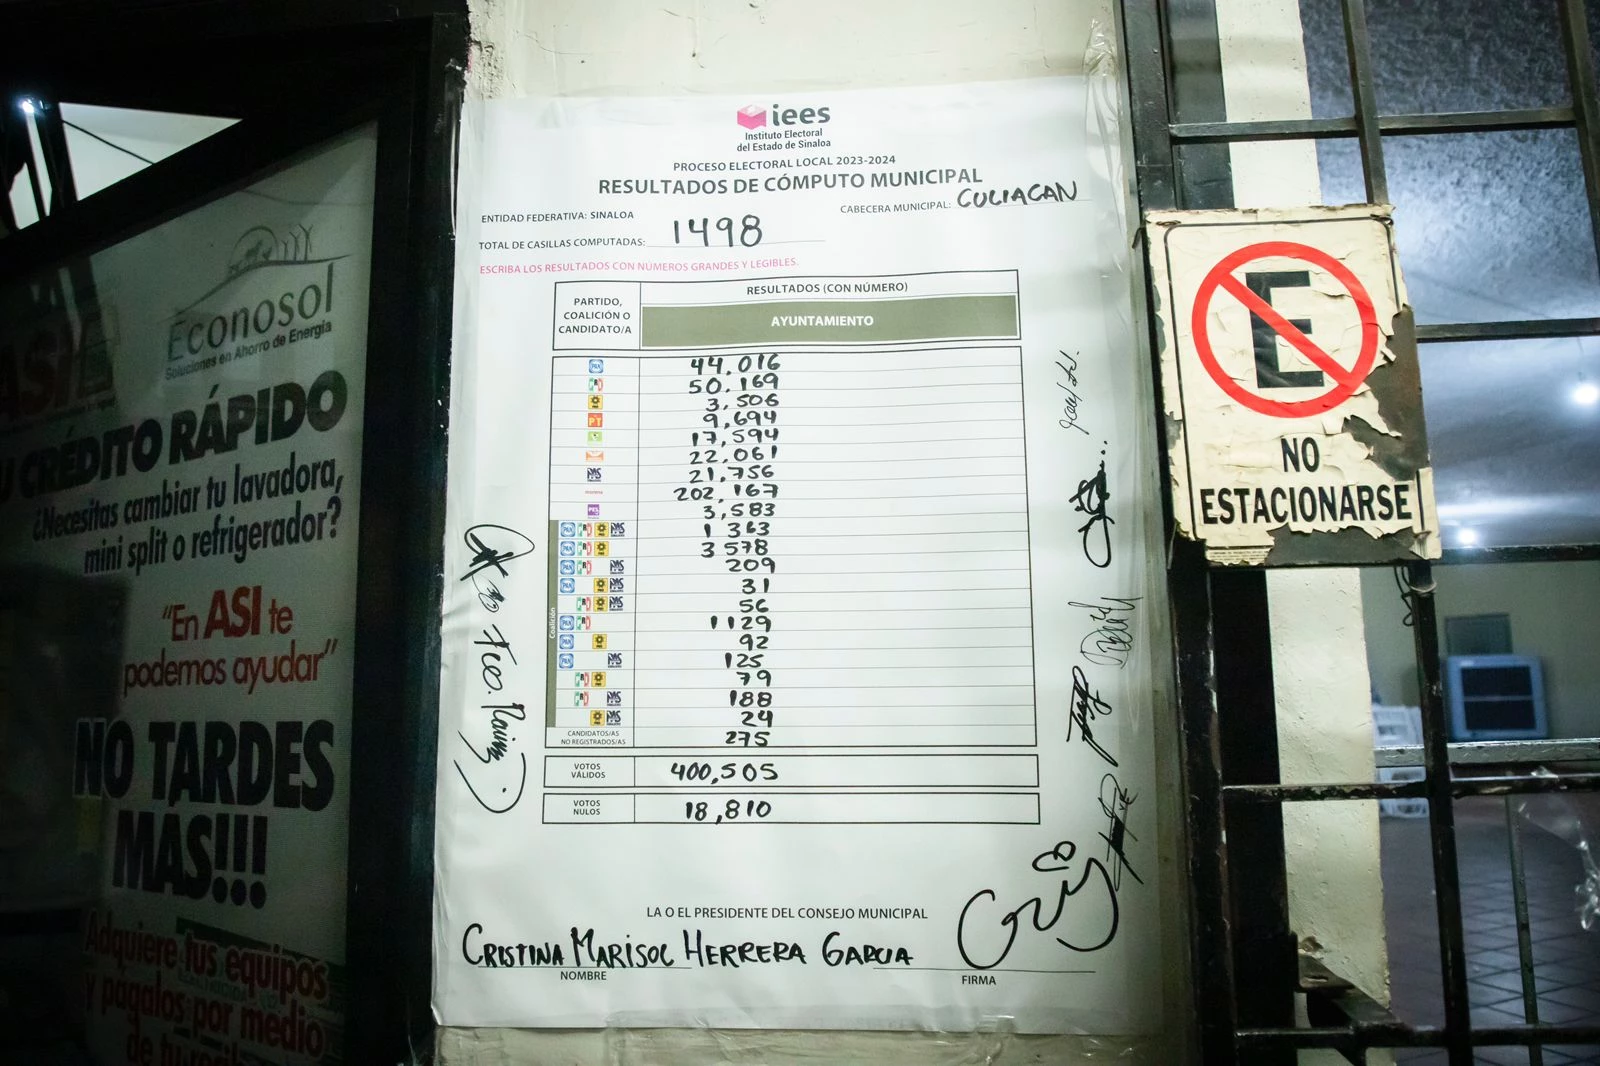 iees
Instituto Electoral
del Estado de Sinaloa
PROCESO ELECTORAL LOCAL 2023-2024
RESULTADOS DE CÓMPUTO MUNICIPAL
ENTIDAD FEDERATIVA: SINALOA
CABECERA MUNICIPAL: CULIACAN
TOTAL DE CASILLAS COMPUTADAS: 1498
ESCRIBA LOS RESULTADOS CON NÚMEROS GRANDES Y LEGIBLES.
PARTIDO,
COALICIÓN O
CANDIDATO/A
RESULTADOS (CON NÚMERO)
AYUNTAMIENTO
PAN 44,016
PRD 50,169
3,506
PT 9,694
17,594
22,061
PAS 21,756
morena 202,167
PES 3,583
Coalición
PAN PRD PAS 1 363
PAN PRD 3 578
PAN PRD PAS 209
PAN PAS 31
PRD PAS 56
PAN PRD 1129
PAN 92
PAN PAS 125
PRD 79
PRD PAS 188
PAS 24
CANDIDATOS/AS
NO REGISTRADOS/AS
275
VOTOS
VÁLIDOS
400,505
VOTOS
NULOS
18,810
LA O EL PRESIDENTE DEL CONSEJO MUNICIPAL
CRISTINA MARISOL HERRERA GARCIA
NOMBRE
FIRMA
Econosol
Soluciones en Ahorro de Energía
CRÉDITO RÁPIDO
¿Necesitas cambiar tu lavadora,
mini split o refrigerador?
"En ASI te
podemos ayudar"
NO TARDES
MÁS!!!
Adquiere tus equipos
y pagalos por medio
E
NO
ESTACIONARSE